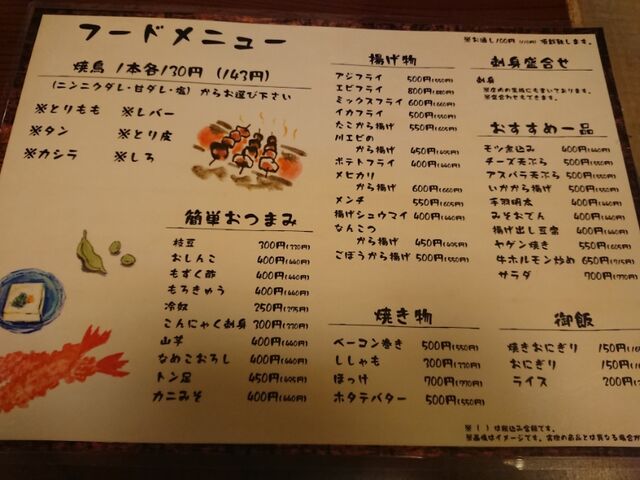 フードメニュー
※お通し100円(110円)頂戴致します。
焼鳥 1本各130円 (143円)
(ニンニクダレ・甘ダレ・塩) からお選び下さい
※とりもも ※レバー
※タン ※とり皮
※カシラ ※しろ
簡単おつまみ
枝豆 300円(330円)
おしんこ 400円(440円)
もずく酢 400円(440円)
もろきゅう 400円(440円)
冷奴 250円(275円)
こんにゃく刺身 300円(330円)
山芋 400円(440円)
なめこおろし 400円(440円)
トン足 450円(495円)
カニみそ 400円(440円)
揚げ物
アジフライ 500円(550円)
エビフライ 800円(880円)
ミックスフライ 600円(660円)
イカフライ 500円(550円)
たこから揚げ 500円(550円)
川エビの
から揚げ 450円(495円)
ポテトフライ 400円(440円)
メヒカリ
から揚げ 600円(660円)
メンチ 550円(605円)
揚げシュウマイ 400円(440円)
なんこつ
から揚げ 450円(495円)
ごぼうから揚げ 500円(550円)
焼き物
ベーコン巻き 500円(550円)
ししゃも 300円(330円)
ほっけ 700円(770円)
ホタテバター 500円(550円)
刺身盛合せ
刺身
※盛合せもできます。
おすすめ一品
モツ煮込み 400円(440円)
チーズ天ぷら 500円(550円)
アスパラ天ぷら 500円(550円)
いかから揚げ 500円(550円)
手羽明太 400円(440円)
みそおでん 400円(440円)
揚げ出し豆腐 400円(440円)
ヤゲン焼き 550円(605円)
牛ホルモン炒め 650円(715円)
サラダ 700円(770円)
御飯
焼きおにぎり 150円
おにぎり 150円
ライス 200円
※( )は税込み金額です。
※画像はイメージです。実際の商品とは異なる場合が